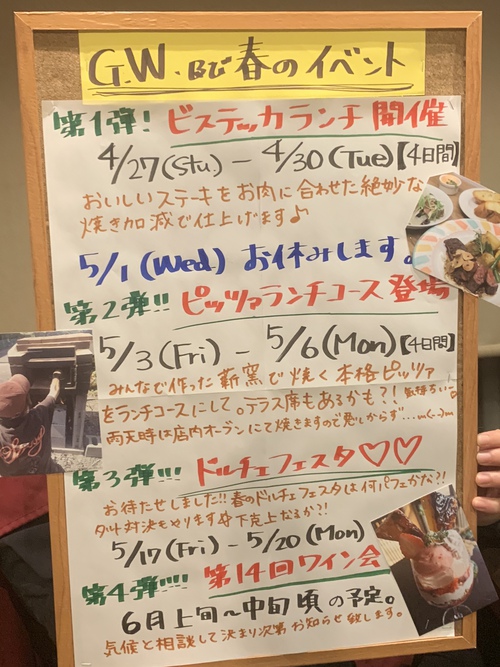 G.W.及び春のイベント
第1弾! ビステッカランチ 開催
4/27(Stu.) - 4/30(Tue)【4日間】
おいしいステーキをお肉に合わせた絶妙な
焼き加減で仕上げます♪
5/1(Wed) お休みします。
第2弾!! ピッツァランチコース 登場
5/3(Fri) - 5/6(Mon)【4日間】
みんなで作った薪窯で焼く本格ピッツァ
をランチコースにして。テラス席もあるかも?! 気持ちいい
雨天時は店内オーブンにて焼きますので悪しからず…m(_ _)m
第3弾!!! ドルチェフェスタ♡♡
お待たせしました!! 春のドルチェフェスタは何パフェかな?!
タルト対決もやります 下克上なるか?!
5/17(Fri) - 5/20(Mon)
第4弾!!!! 第14回ワイン会
6月上旬～中旬頃の予定。
気候と相談して決まり次第お知らせ致します。